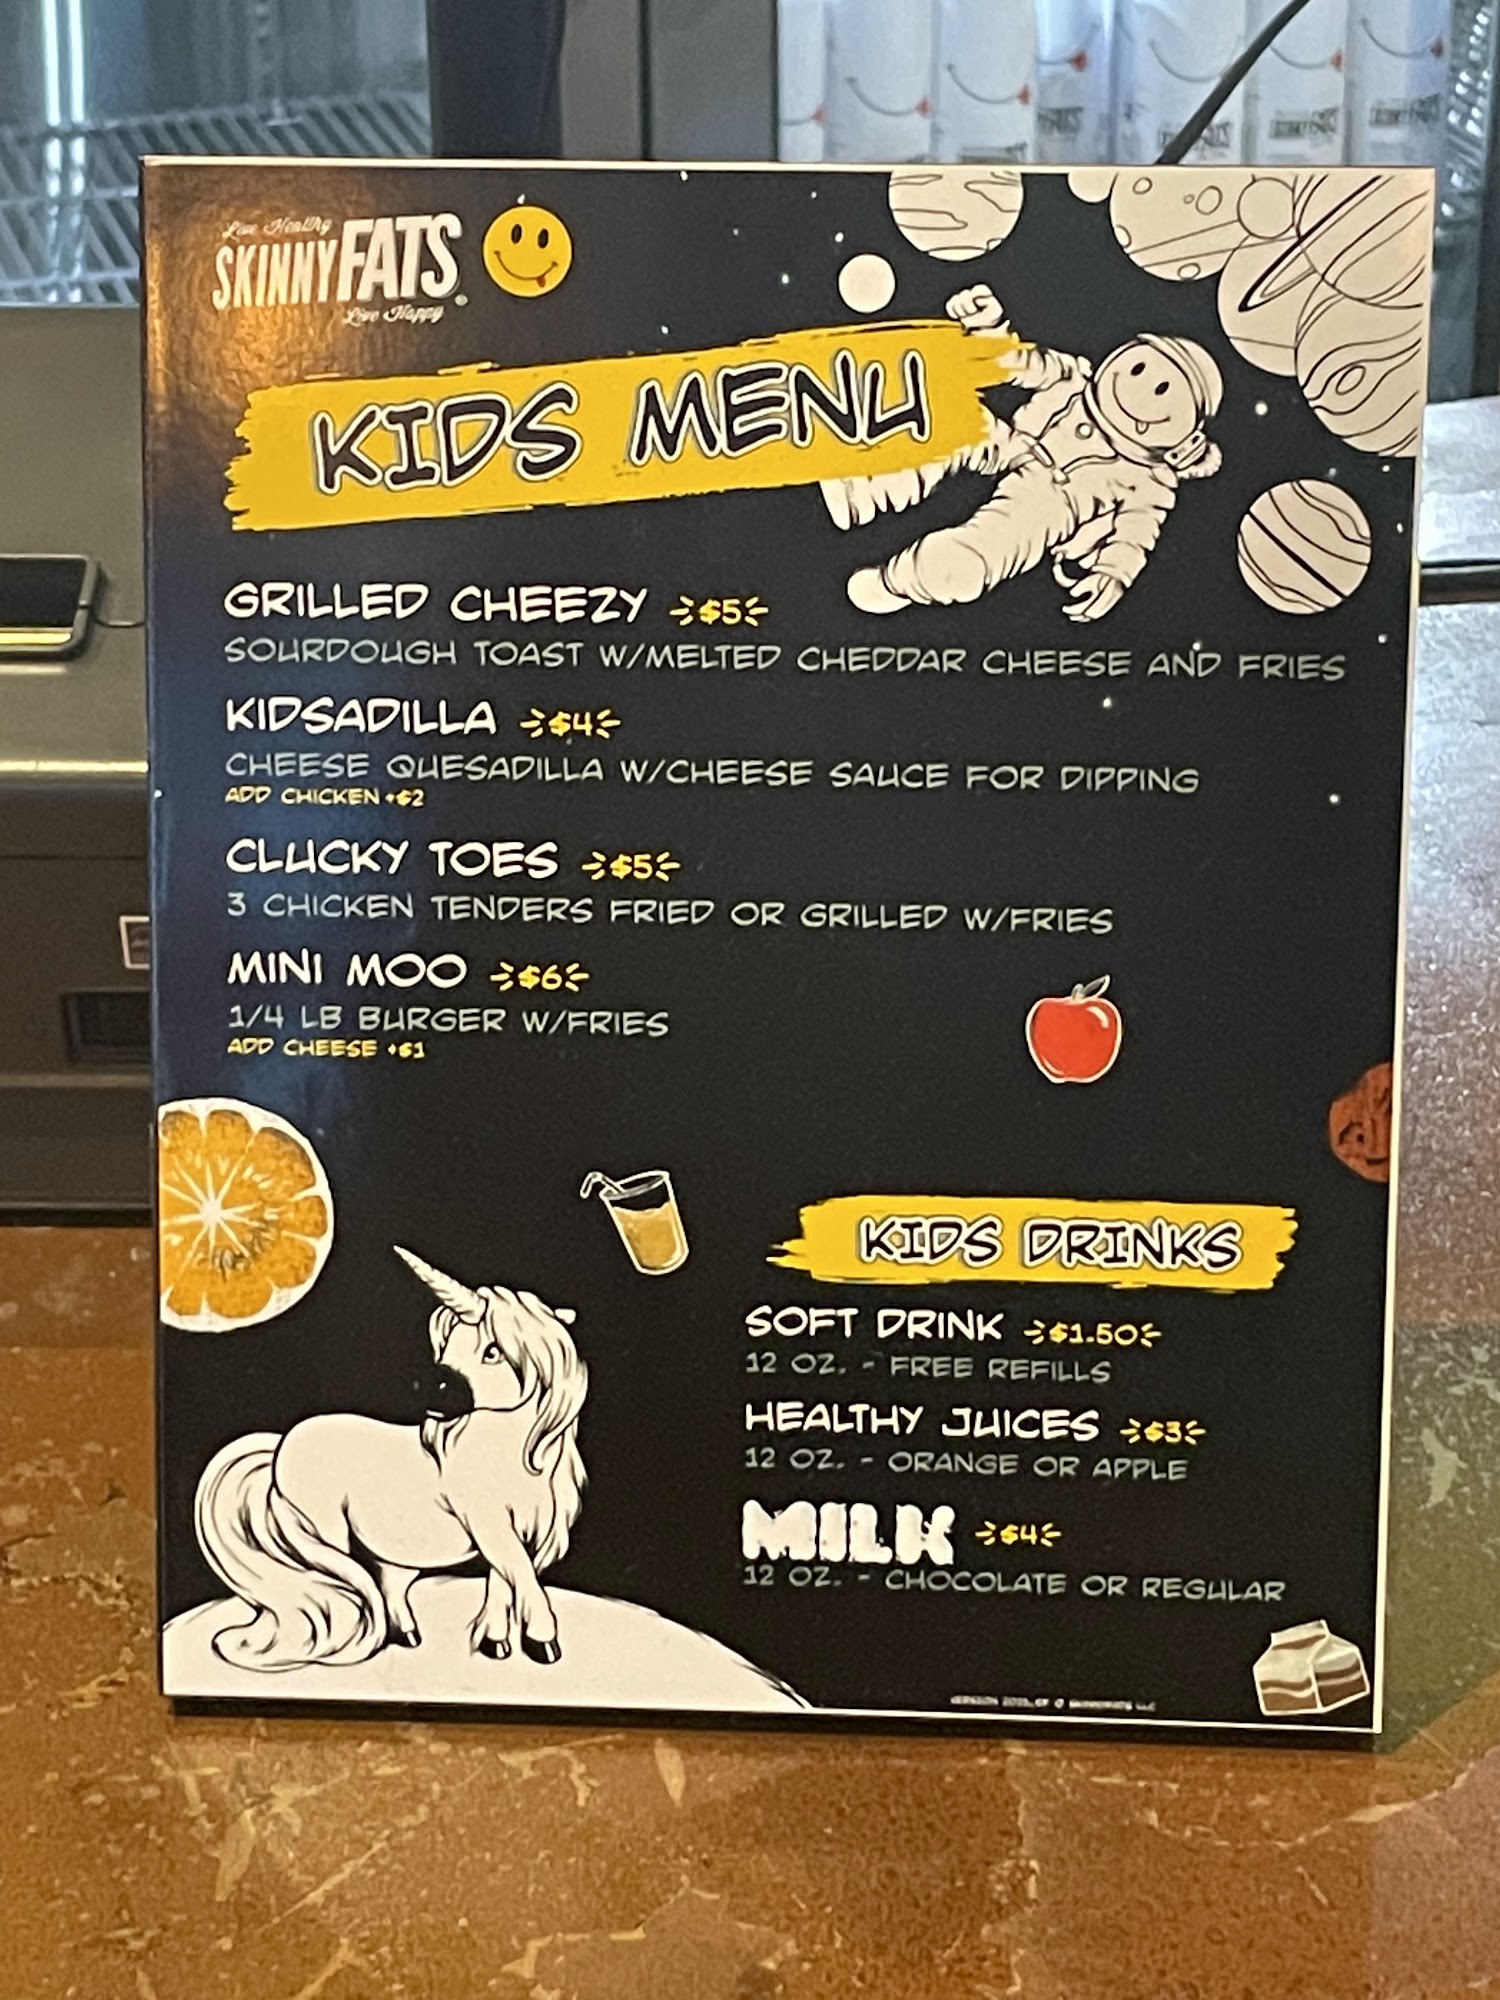 Live Healthy
SKINNYFATS
Live Happy
KIDS MENU
GRILLED CHEEZY $5
SOURDOUGH TOAST W/MELTED CHEDDAR CHEESE AND FRIES
KIDSADILLA $4
CHEESE QUESADILLA W/CHEESE SAUCE FOR DIPPING
ADD CHICKEN +$2
CLUCKY TOES $5
3 CHICKEN TENDERS FRIED OR GRILLED W/FRIES
MINI MOO $6
1/4 LB BURGER W/FRIES
ADD CHEESE +$1
KIDS DRINKS
SOFT DRINK $1.50
12 OZ. - FREE REFILLS
HEALTHY JUICES $3
12 OZ. - ORANGE OR APPLE
MILK $4
12 OZ. - CHOCOLATE OR REGULAR